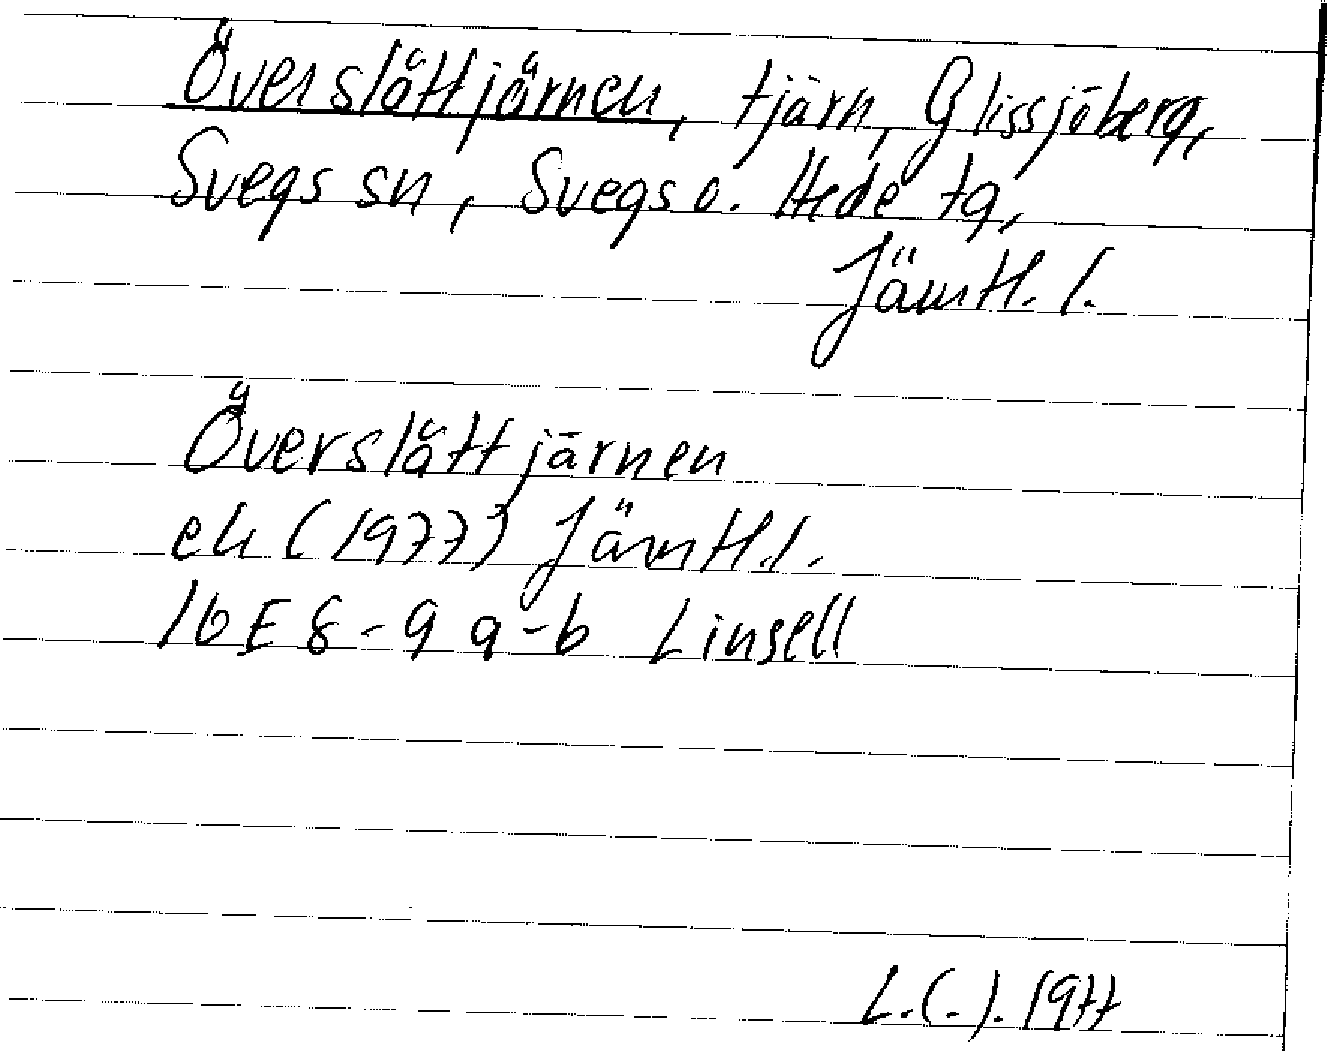 Överslåttjärnen, tjärn, Glissjöberg,
Svegs sn, Svegs o. Hede tg,
Jämtl. l.
Överslåttjärnen
ek (1977) Jämtl. l.
16E 8-9 a-b Linsell
L.(.). 1977